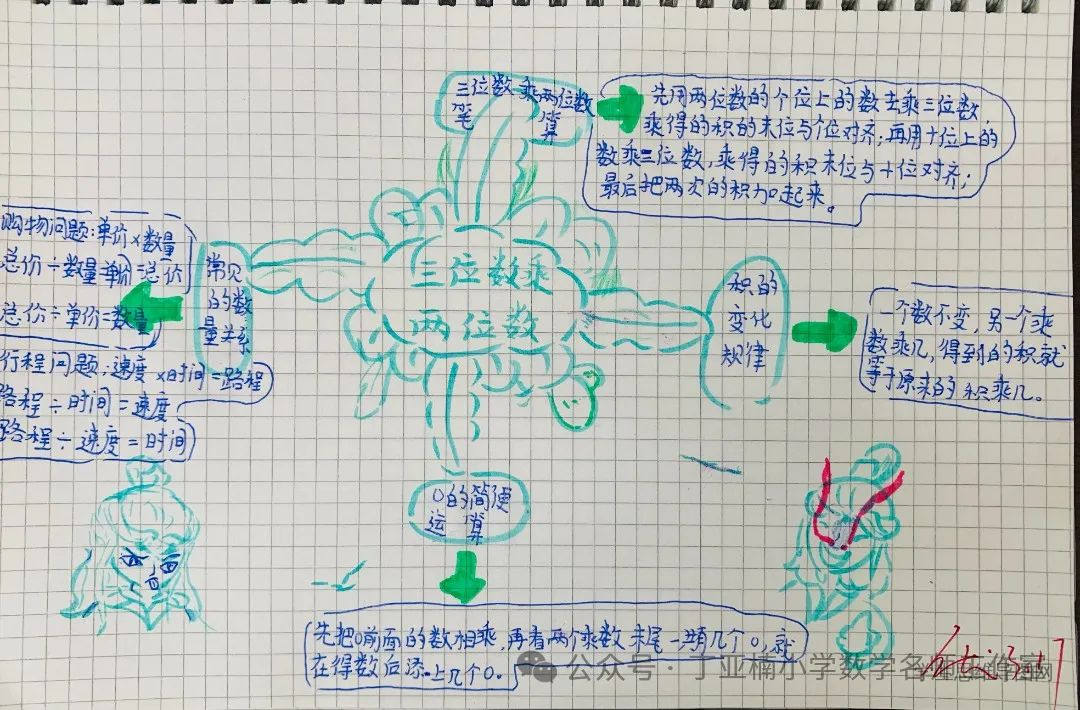 三位数乘两位数
笔算
先用两位数的个位上的数去乘三位数，
乘得的积的末位与个位对齐；再用十位上的
数乘三位数，乘得的积末位与十位对齐；
最后把两次的积加起来。
三位数乘
两位数
购物问题：单价×数量
=总价
总价÷数量=单价
总价÷单价=数量
行程问题：速度×时间=路程
路程÷时间=速度
路程÷速度=时间
常见
的数
量关系
积的
变化
规律
一个数不变，另一个乘
数乘几，得到的积就
等于原来的积乘几。
0的简便
运算
先把0前面的数相乘，再看两个乘数末尾一共有几个0，就
在得数后添上几个0。
公众号·丁亚楠小学数学名师工作室